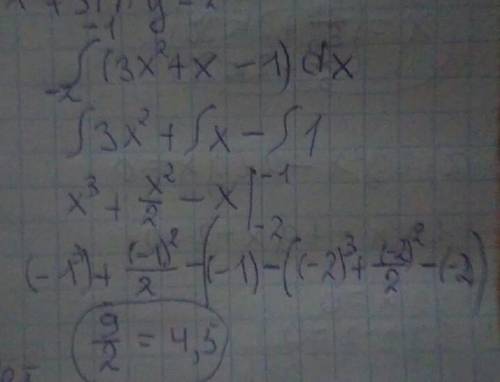 -1
∫ (3x² + x - 1) dx
-2
∫3x² + ∫x - ∫1
x³ + x²/2 - x |₋₂⁻¹
(-1³) + (-1)²/2 - (-1) - ((-2)³ + (-2)²/2 - (-2)
9/2 = 4,5